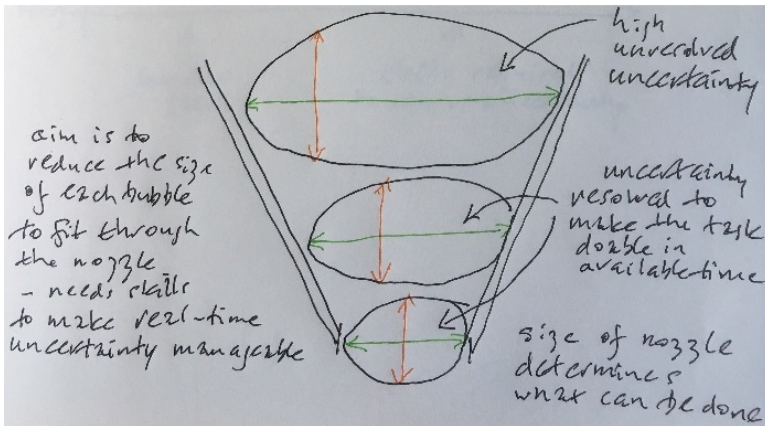 high
unresolved
uncertainty
aim is to
reduce the size
of each bubble
to fit through
the nozzle
- needs skills
to make real-time
uncertainty manageable
uncertainty
resolved to
make the task
doable in
available time
size of nozzle
determines
what can be done